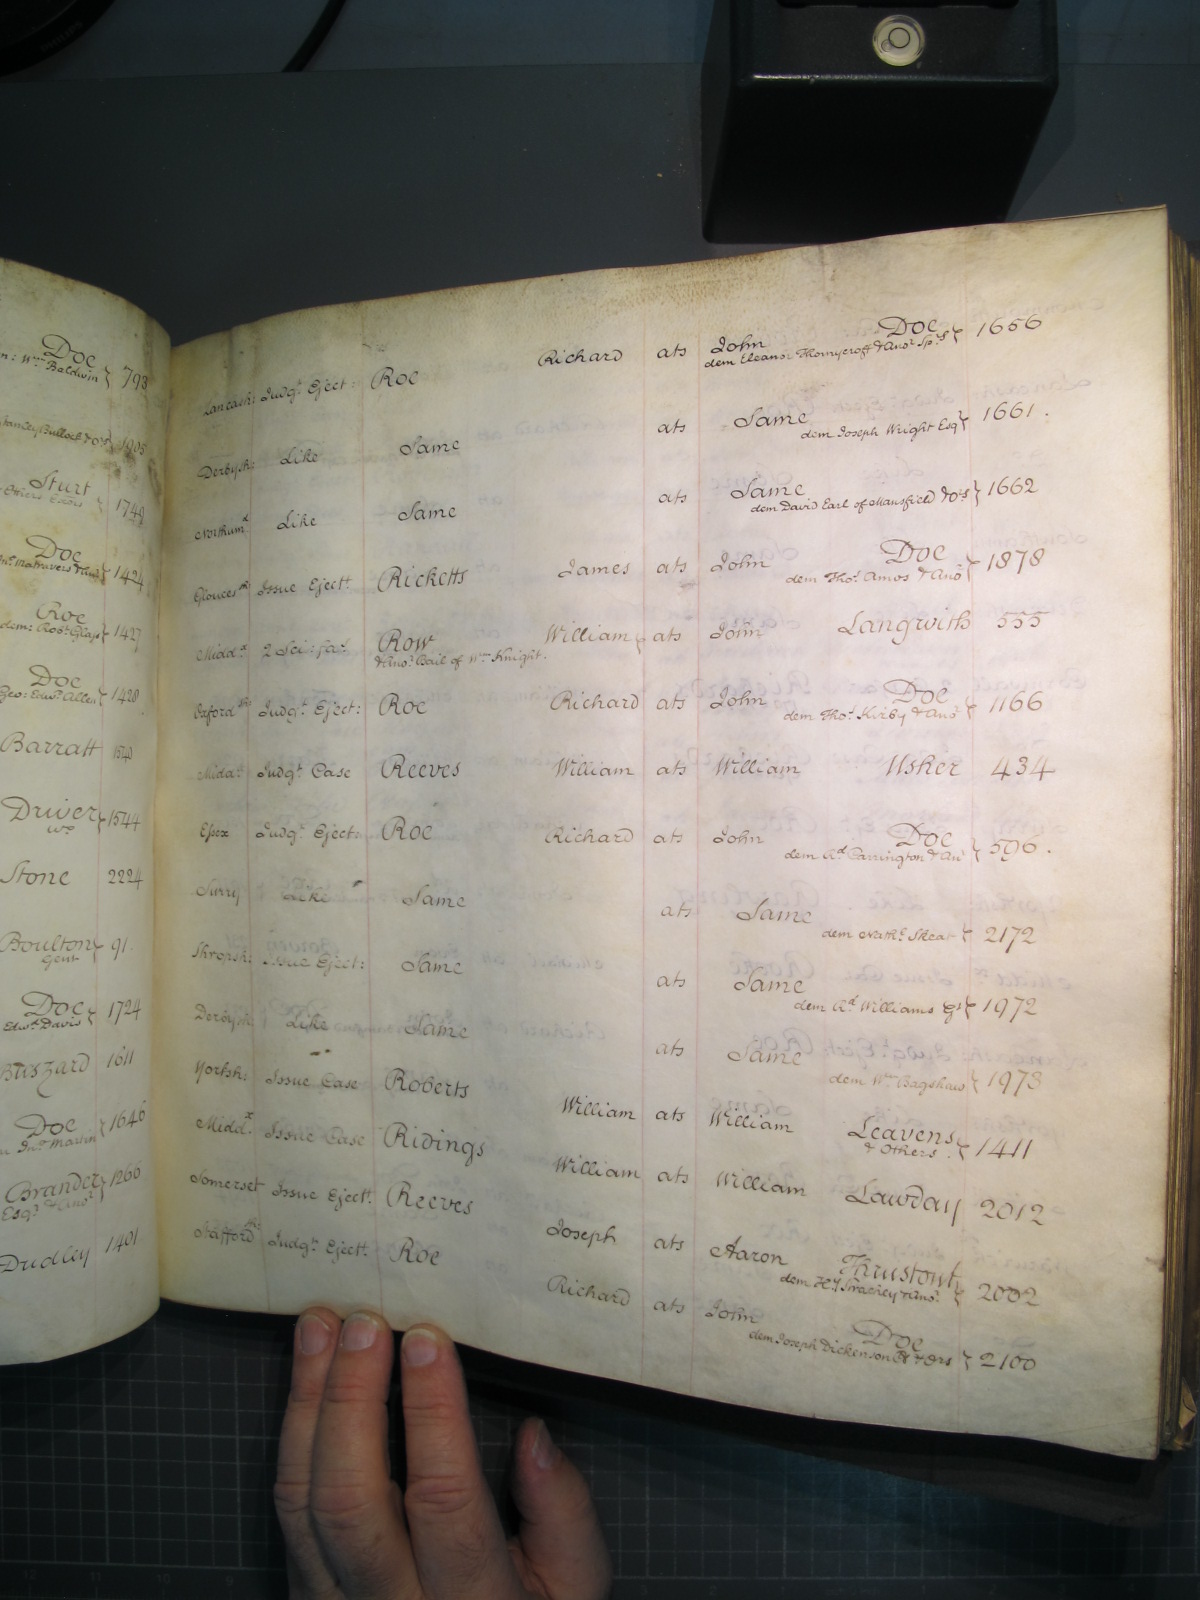 Doe
Wm Baldwin } 793
Stanley Bullock & ors } 1905
Sturt
Others Exors } 1749
Doe
Matravers & anr } 1424
Roe
dem: Robt Glass } 1427
Doe
Geo: Edwd Allen } 1428
Barratt 1540
Driver } 1544
Stone 2224
Boulton } 91
Gent
Doe
Edwd Davis } 1724
Buszard 1611
Doe
Jno Martin } 1646
Brander } 1266
Esqr & Anor
Dudley 1401
Lancash: Judgt Eject: Roe Richard ats John Doe } 1656
dem Eleanor Thornycroft & Anor
Derbysh: Like Same ats Same } 1661.
dem Joseph Wright Esq
Northumd Like Same ats Same } 1662
dem David Earl of Mansfield & ors
Gloucesr Issue Ejectt Ricketts James ats John Doe } 1878
dem Thos Amos & Anor
Middx 2 Sci: fas Row William ats John Langwith 555
& Anor Bail of Wm Knight.
Oxfordsh: Judgt Eject: Roe Richard ats John Doe } 1166
dem Thos Kirby & Anor
Middx Judgt Case Reeves William ats William Usher 434
Essex Judgt Eject: Roe Richard ats John Doe } 596.
dem Rd Carrington & An
Surry Like Same ats Same } 2172
dem Nathl Skeat
Shropsh: Issue Eject: Same ats Same } 1972
dem Rd Williams
Derbysh: Like Same ats Same } 1973
dem Wm Bagshaw
Yorksh: Issue Case Roberts William ats William Leavens } 1411
& Others
Middx Issue Case Ridings William ats William Lawday 2012
Somerset Issue Ejectt Reeves Joseph ats Aaron Thrustout } 2002
dem Hy Strachey & Anor
Staffordsh: Judgt Ejectt Roe Richard ats John Doe } 2100
dem Joseph Dickenson & ors